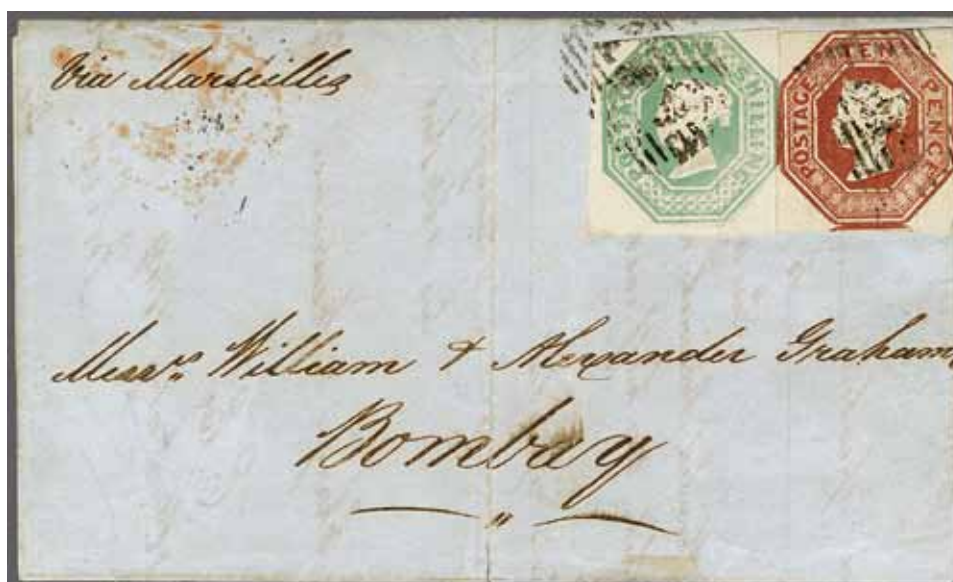 Via Marseilles
POSTAGE ONE SHILLING
POSTAGE TEN PENCE
Messrs. William & Alexander Graham
Bombay
"